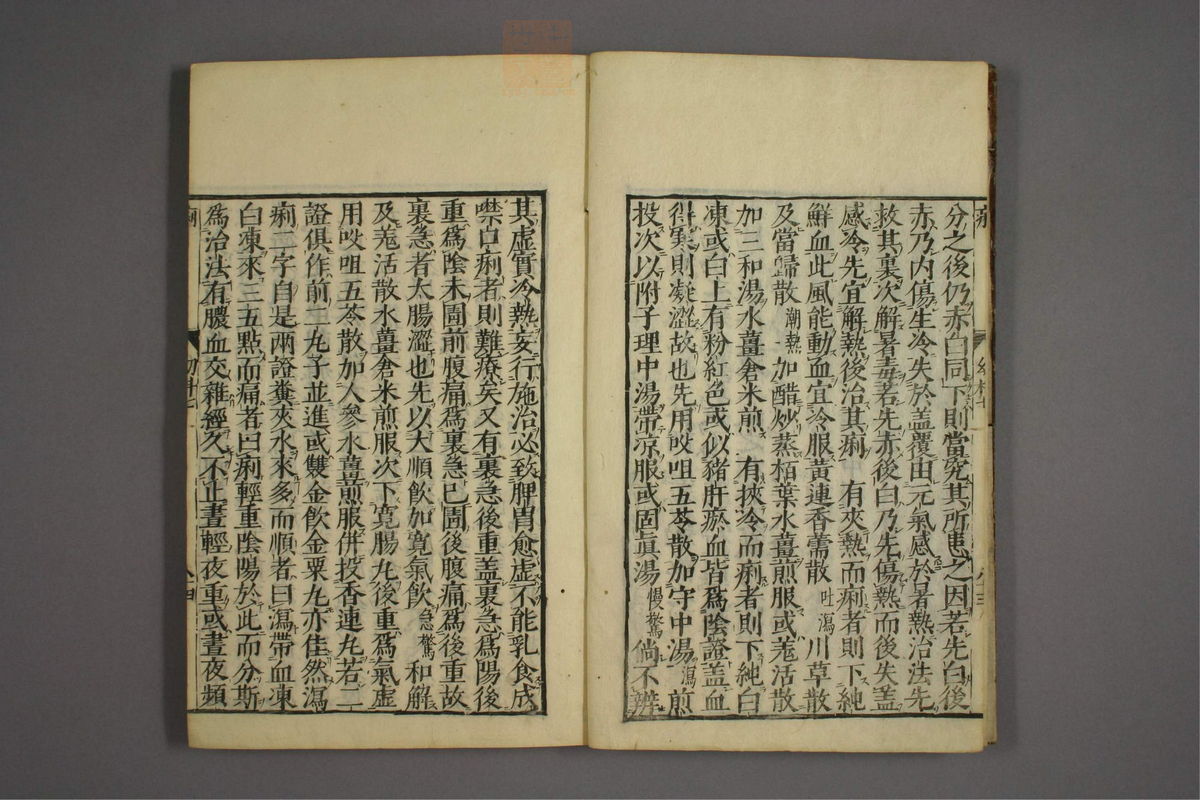 分之後仍赤白同下則當究其所患之因若先白後
赤乃內傷生冷失於盖覆由元氣感於暑熱治法先
救其裏次解暑毒若先赤後白乃先傷熱而後失盖
感冷先宜解熱後治其痢 有夾熱而痢者則下純
鮮血此風能動血宜冷服黃連香薷散吐瀉川草散
及當歸散潮熱加醋炒蒸栢葉水薑煎服或羗活散
加三和湯水薑倉米煎 有挾冷而痢者則下純白
凍或白上有粉紅色或似猪肝瘀血皆爲陰證盖血
得寒則凝澀故也先用㕮咀五苓散加守中湯瀉煎
投次以附子理中湯帶凉服或固眞湯慢驚倘不辨
其虛實冷熱妄行施治必致脾胃愈虛不能乳食成
噤口痢者則難療矣又有裏急後重盖裏急爲陽後
重爲陰未圊前腹痛爲裏急已圊後腹痛爲後重故
裏急者大腸澀也先以大順飮加寬氣飮急驚和解
及羗活散水薑倉米煎服次下寛腸丸後重爲氣虛
用㕮咀五苓散加人參水薑煎服併投香連丸若二
證俱作前二丸子並進或雙金飮金粟丸亦佳然瀉
痢二字自是兩證糞夾水來多而順者曰瀉帶血凍
白凍來三五點而痛者曰痢輕重陰陽於此而分斯
爲治法有膿血交雜經久不止晝輕夜重或晝夜頻